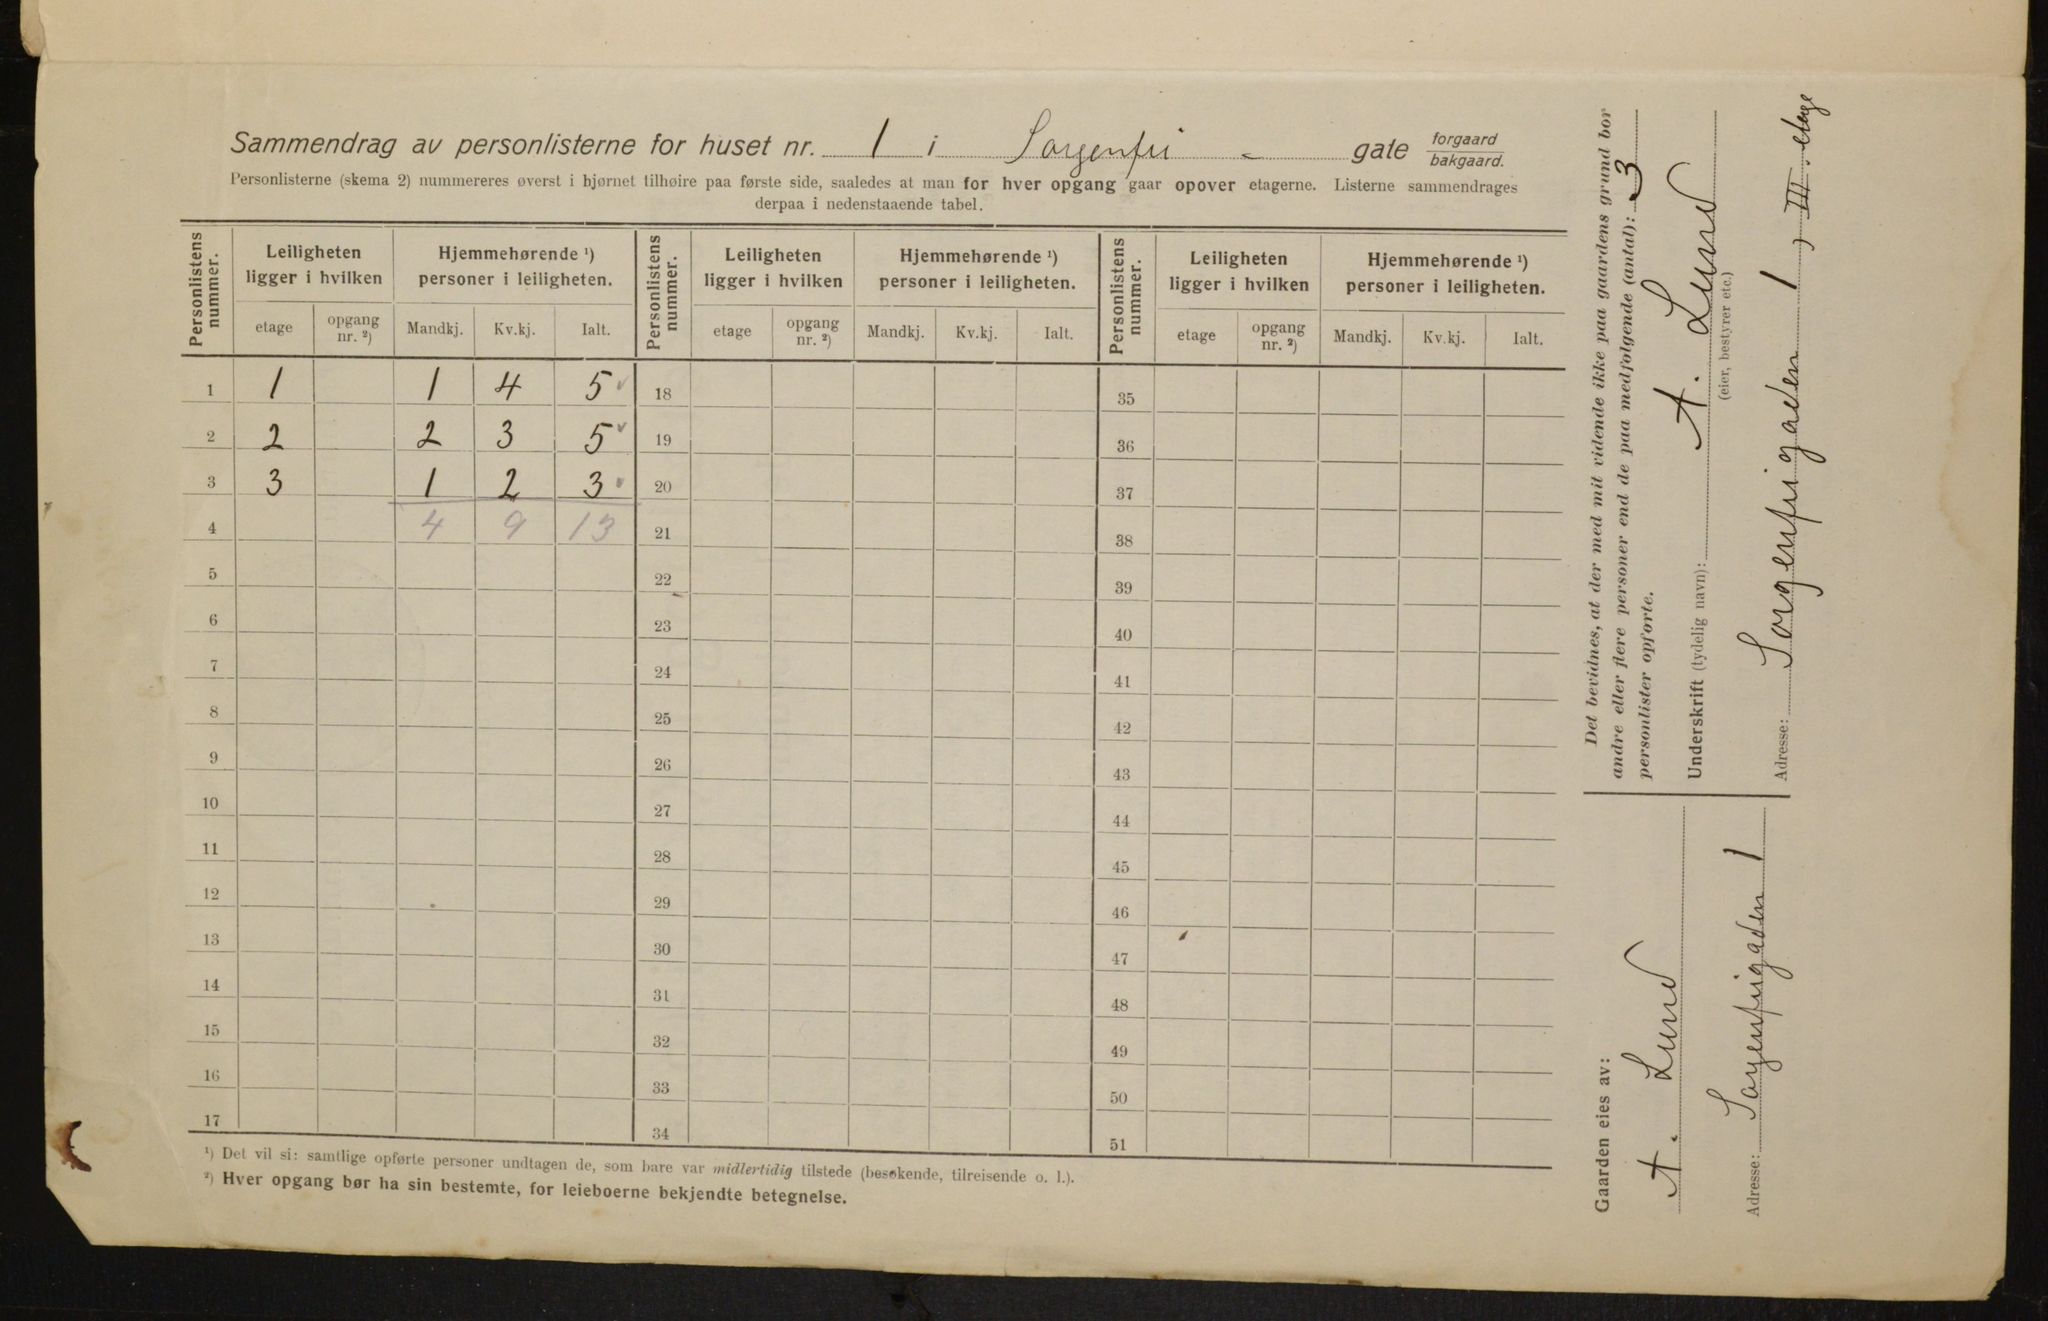 Sammendrag av personlisterne for huset nr. 1 i Sorgenfri - gate forgaard bakgaard.
Personlisterne (skema 2) nummereres øverst i hjørnet tilhøire paa første side, saaledes at man for hver opgang gaar opover etagerne. Listerne sammendrages
derpaa i nedenstaaende tabel.
Personlistens nummer. Leiligheten ligger i hvilken Hjemmehørende ¹) personer i leiligheten. Personlistens nummer. Leiligheten ligger i hvilken Hjemmehørende ¹) personer i leiligheten. Personlistens nummer. Leiligheten ligger i hvilken Hjemmehørende ¹) personer i leiligheten.
etage opgang nr. ²) Mandkj. Kv.kj. Ialt. etage opgang nr. ²) Mandkj. Kv.kj. Ialt. etage opgang nr. ²) Mandkj. Kv.kj. Ialt.
1 1 1 4 5 18 35
2 2 2 3 5 19 36
3 3 1 2 3 20 37
4 4 9 13 21 38
5 22 39
6 23 40
7 24 41
8 25 42
9 26 43
10 27 44
11 28 45
12 29 46
13 30 47
14 31 48
15 32 49
16 33 50
17 34 51
¹) Det vil si: samtlige opførte personer undtagen de, som bare var midlertidig tilstede (besøkende, tilreisende o. l.).
²) Hver opgang bør ha sin bestemte, for leieboerne bekjendte betegnelse.
Det bevidnes, at der med mit vidende ikke paa gaardens grund bor
andre eller flere personer end de paa medfølgende (antal): 3
personlister opførte.
Underskrift (tydelig navn): A. Lund
(eier, bestyrer etc.)
Adresse: Sorgenfrigaden 1, III. etage
Gaarden eies av:
A. Lund
Adresse: Sorgenfrigaden 1